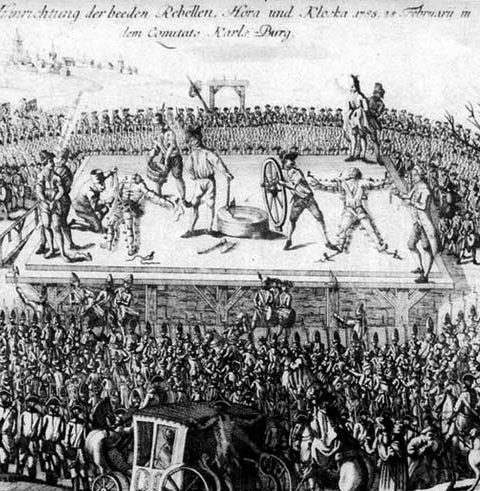 Hinrichtung der beeden Rebellen, Hora und Kloska 1785. 28 Februarii in
dem Comitate Karls-Burg.